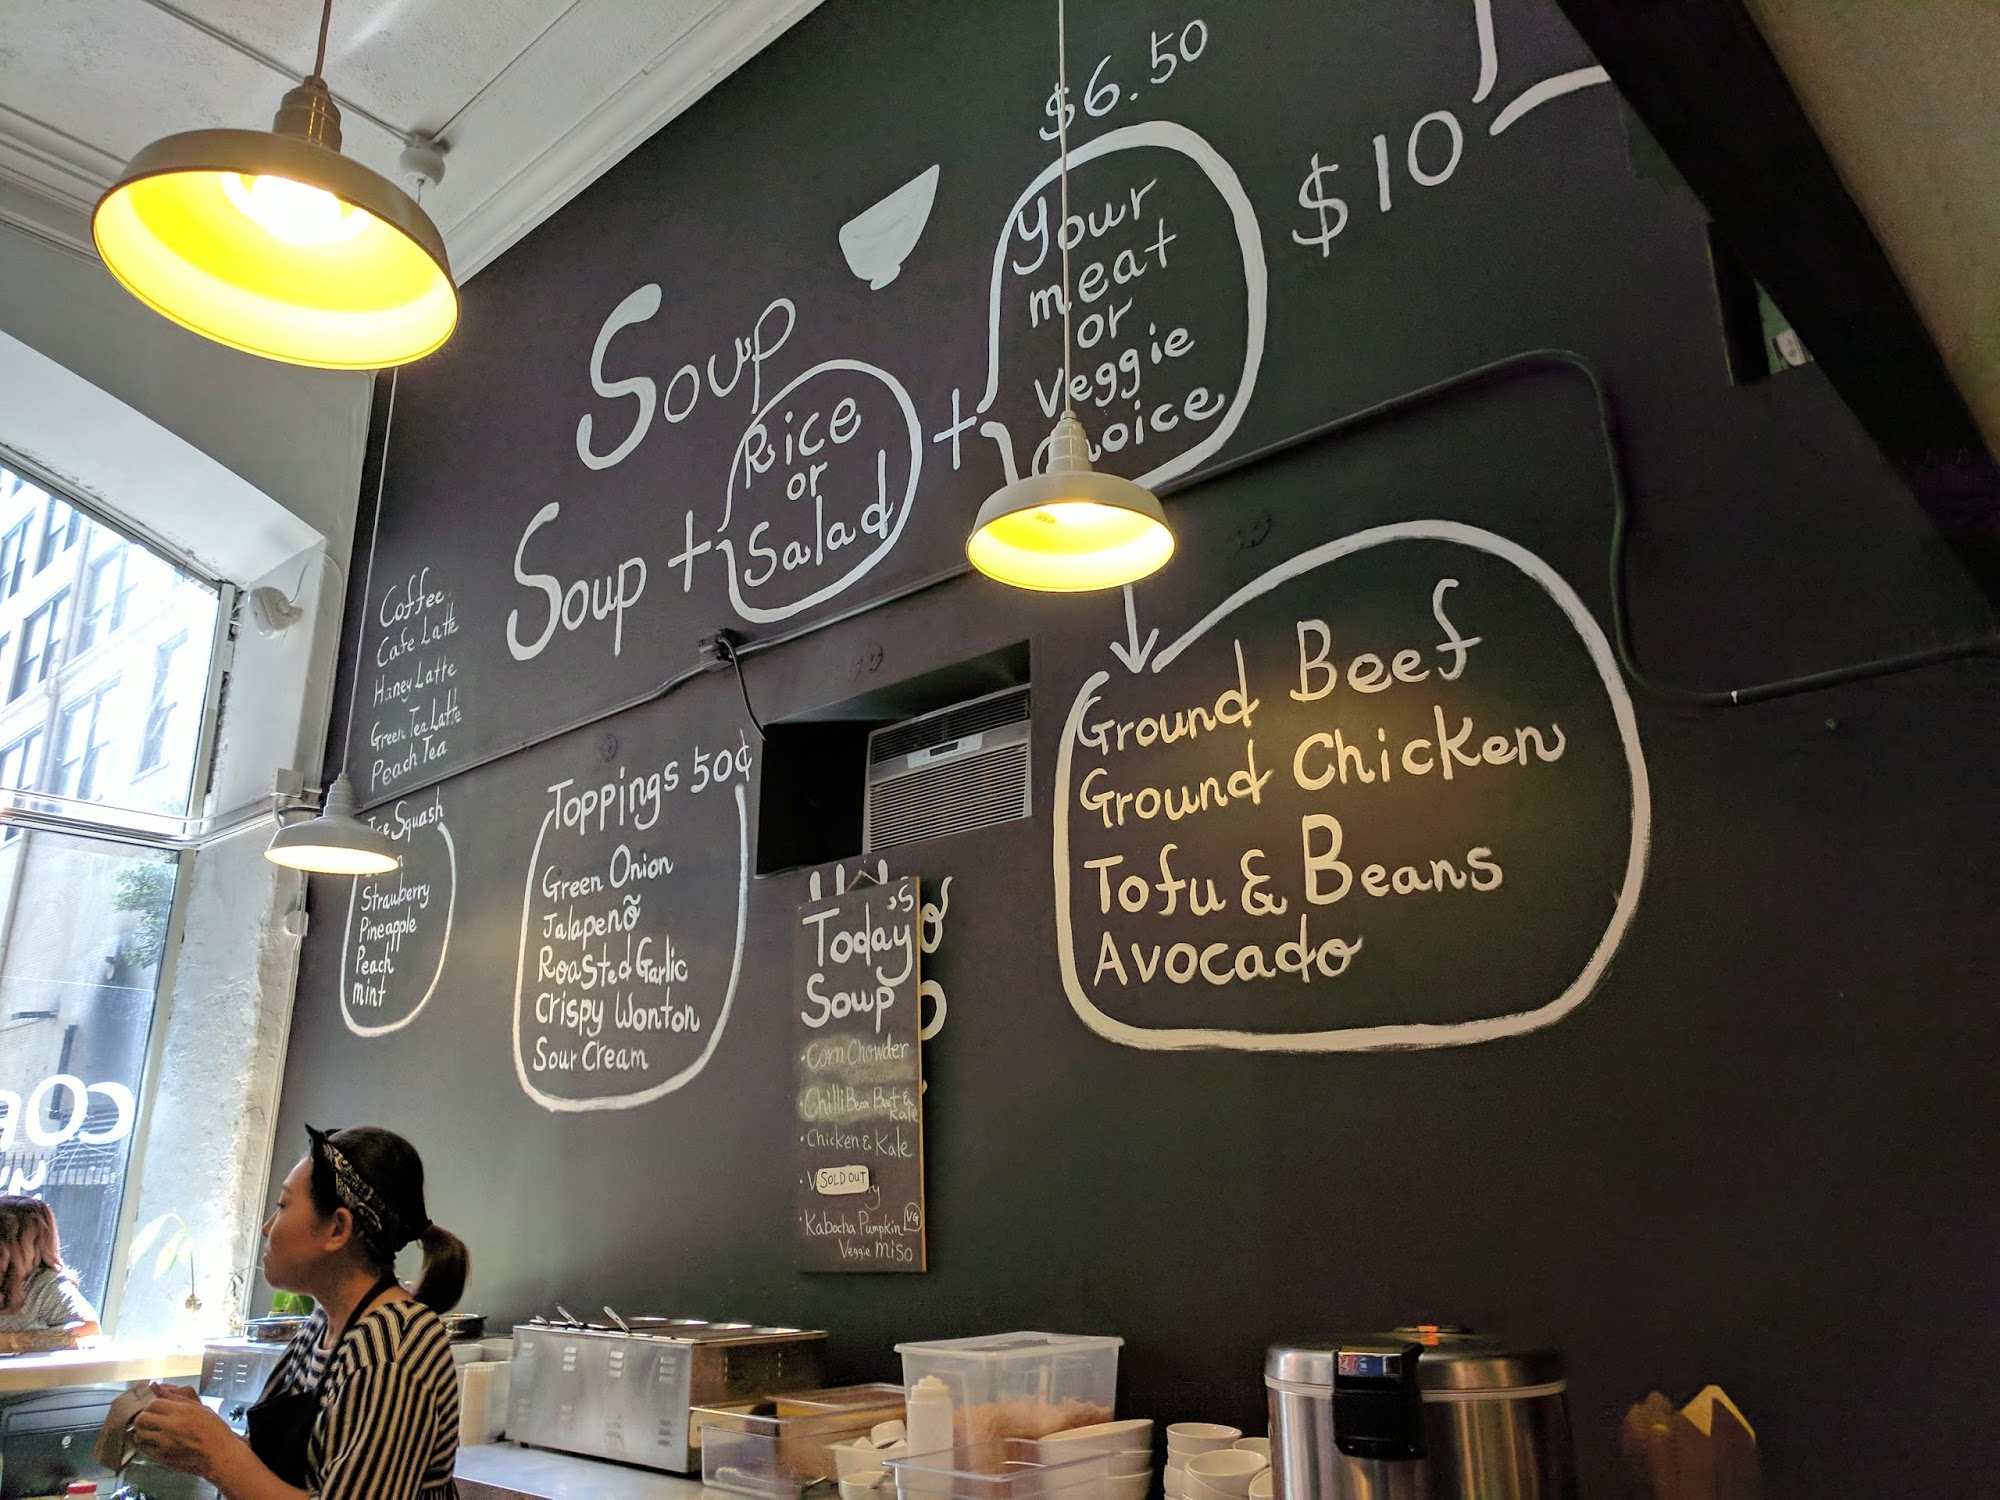 Soup
$6.50
Soup + Rice
or
Salad
+
Your
meat
or
Veggie
Choice
$10
Coffee
Cafe Latte
Honey Latte
Green Tea Latte
Peach Tea
Ice Squash
Strawberry
Pineapple
Peach
mint
Toppings 50¢
Green Onion
Jalapenõ
Roasted Garlic
Crispy Wonton
Sour Cream
Today's
Soup
·Corn Chowder
·Chilli Bean Beef &
Kale
·Chicken & Kale
·
SOLD OUT
·Kabocha Pumpkin VG
Veggie miso
Ground Beef
Ground Chicken
Tofu & Beans
Avocado